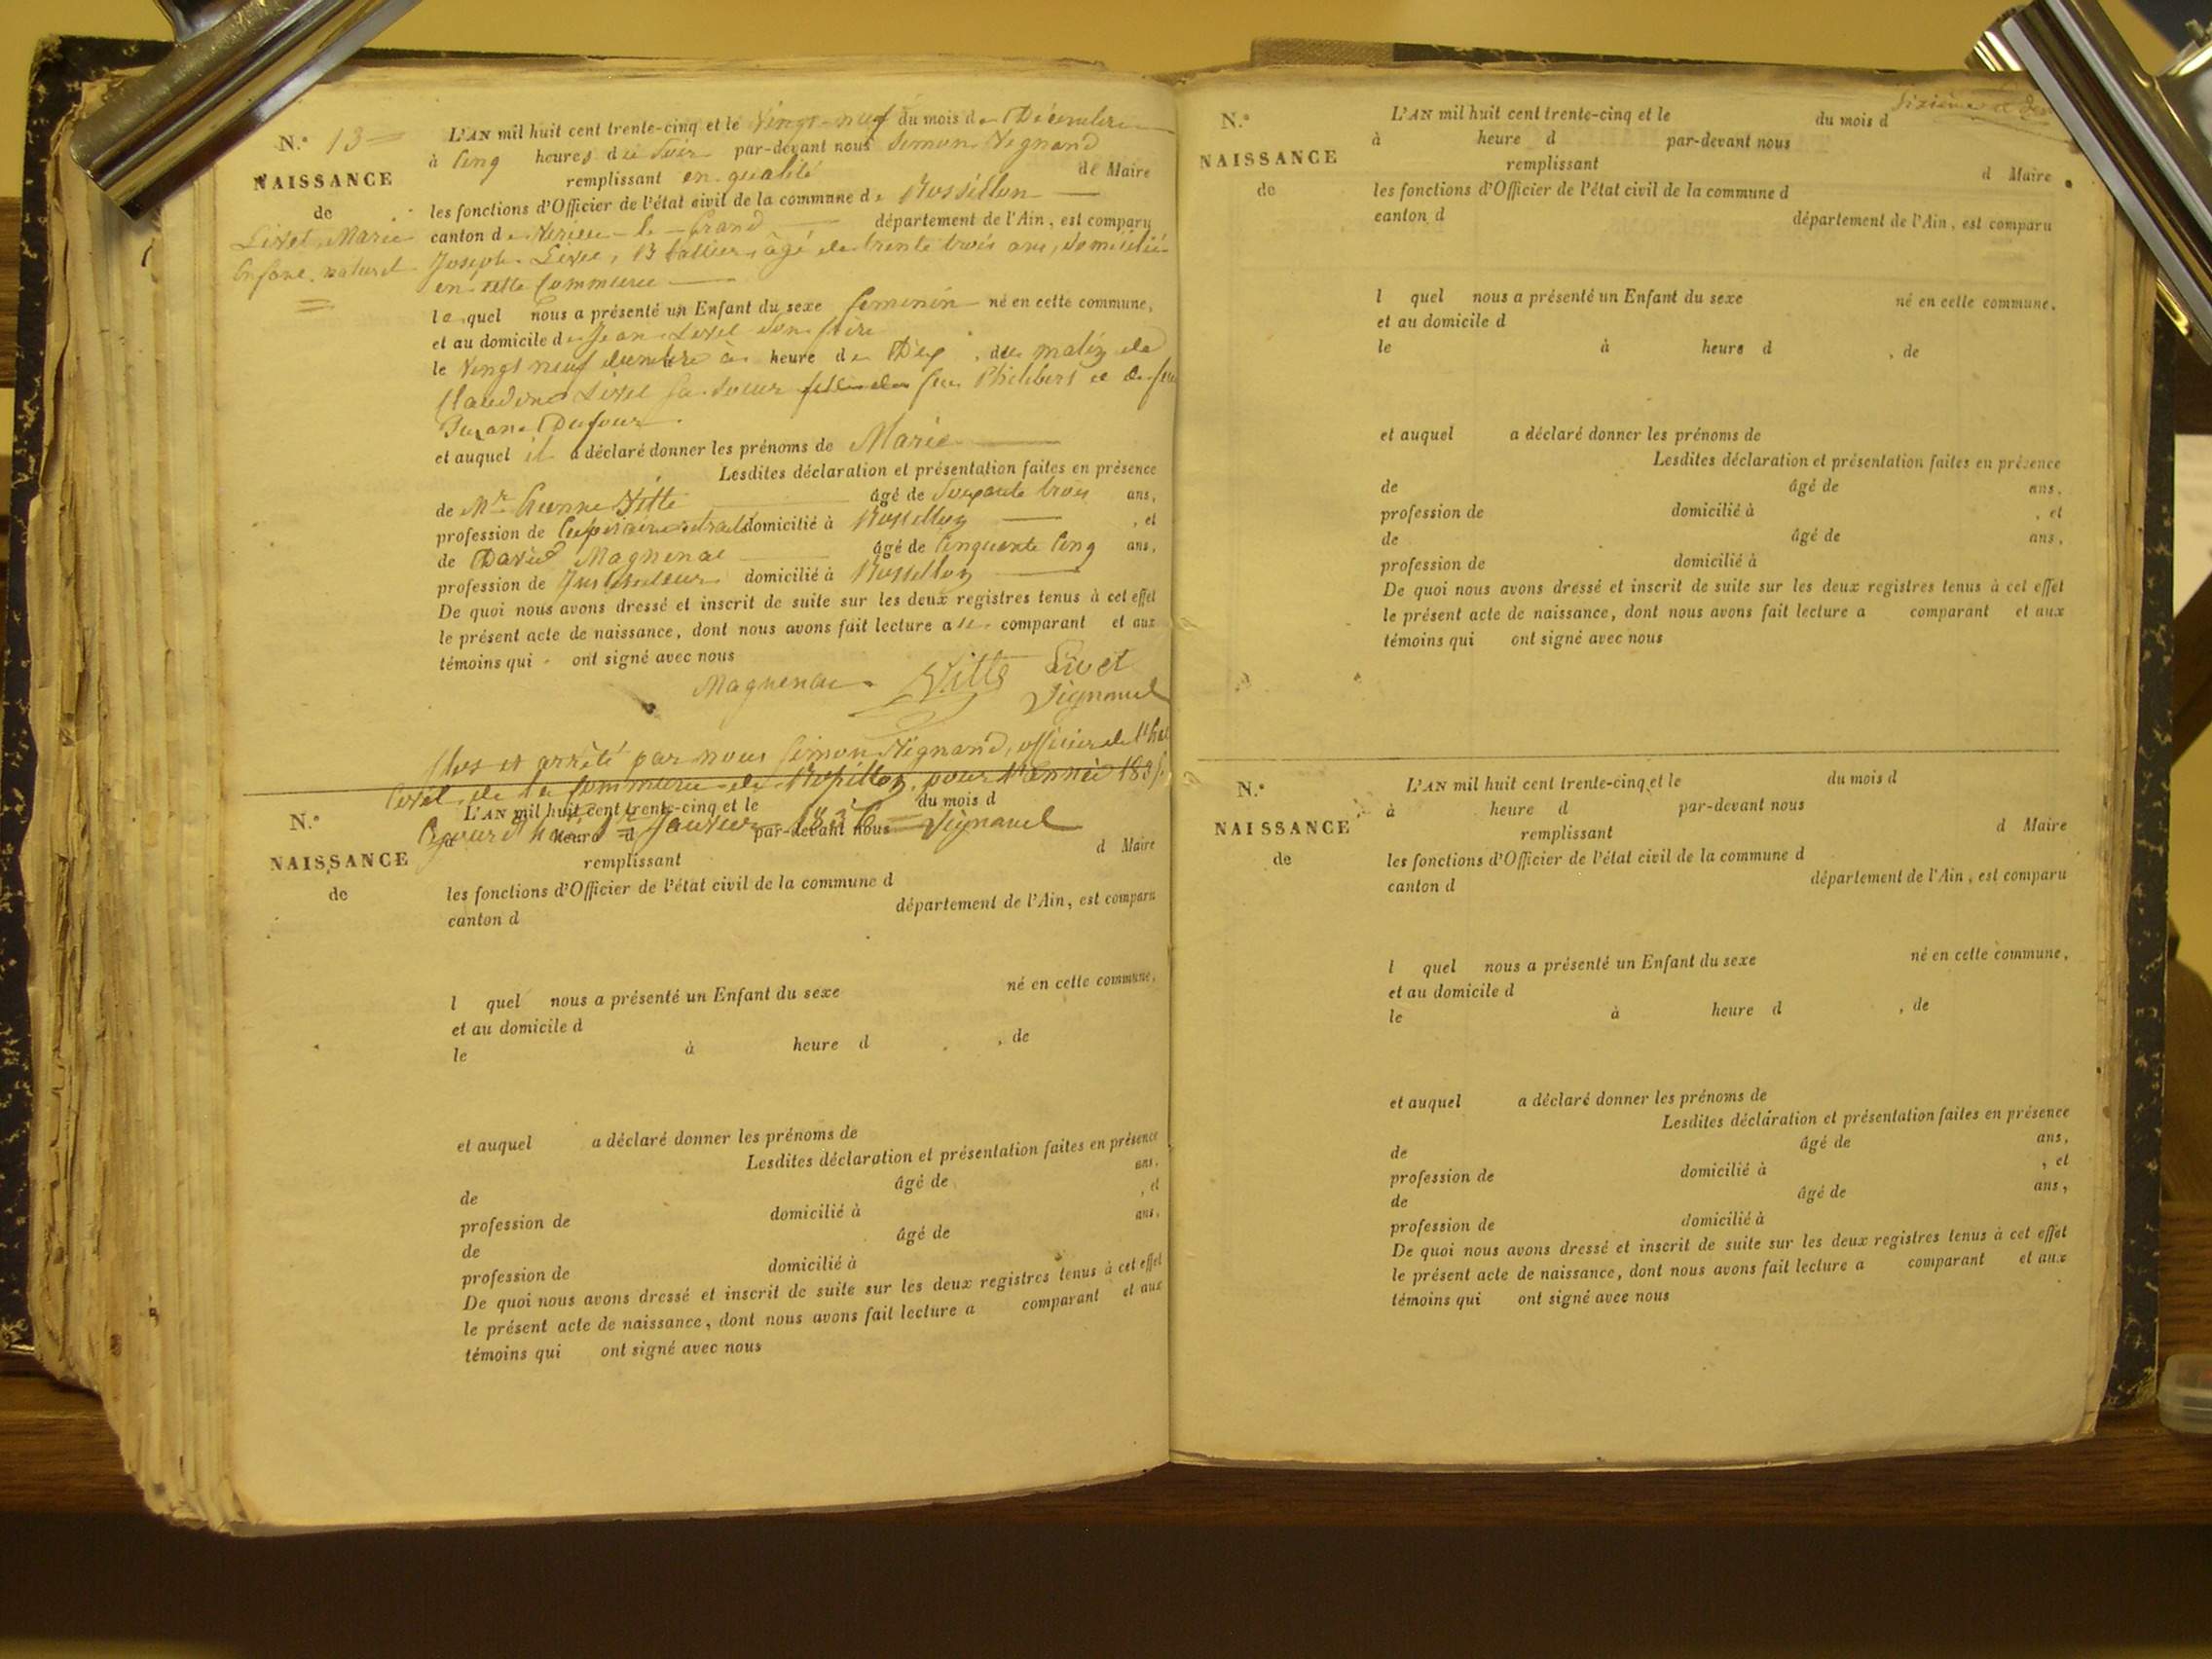 N.° 13
NAISSANCE
de
Livet Marie
Enfant naturel
L'AN mil huit cent trente-cinq et le Vingt-neuf du mois de Décembre
à Cinq heures du Soir par-devant nous Simon Vignand
remplissant en qualité de Maire
les fonctions d'Officier de l'état civil de la commune de Rossillon
canton de Virieu-le-Grand département de l'Ain, est comparu
Joseph Livet, Battelier, âgé de trente trois ans, domicilié
en cette Commune
lequel nous a présenté un Enfant du sexe feminin né en cette commune,
et au domicile de Jean Livet son frère
le Vingt neuf decembre à heure de Dix du matin de
Claudine Livet sa soeur fille de feu Philibert et de feue
Suzane Dufour
et auquel il a déclaré donner les prénoms de Marie
Lesdites déclaration et présentation faites en présence
de Mr. Vitte âgé de Soixante trois ans,
profession de domicilié à Rossillon , et
de David Magnenat âgé de Cinquante Cinq ans,
profession de Instituteur domicilié à Rossillon
De quoi nous avons dressé et inscrit de suite sur les deux registres tenus à cet effet
le présent acte de naissance, dont nous avons fait lecture a comparant et aux
témoins qui ont signé avec nous
Magnenat Vitte Livet
Vignand
Clos et arrêté par nous Simon Vignand, officier de l'état
Civil de la Commune de Rossillon, pour l'année 1835
1er Janvier 1836 Vignand
N.°
NAISSANCE
de
L'AN mil huit cent trente-cinq et le du mois d
à heure d par-devant nous
remplissant d Maire
les fonctions d'Officier de l'état civil de la commune d
canton d département de l'Ain, est comparu
l quel nous a présenté un Enfant du sexe né en cette commune,
et au domicile d
le à heure d , de
et auquel a déclaré donner les prénoms de
Lesdites déclaration et présentation faites en présence
de âgé de ans,
profession de domicilié à , et
de âgé de ans,
profession de domicilié à
De quoi nous avons dressé et inscrit de suite sur les deux registres tenus à cet effet
le présent acte de naissance, dont nous avons fait lecture a comparant et aux
témoins qui ont signé avec nous
N.°
NAISSANCE
de
L'AN mil huit cent trente-cinq et le du mois d
à heure d par-devant nous
remplissant d Maire
les fonctions d'Officier de l'état civil de la commune d
canton d département de l'Ain, est comparu
l quel nous a présenté un Enfant du sexe né en cette commune,
et au domicile d
le à heure d , de
et auquel a déclaré donner les prénoms de
Lesdites déclaration et présentation faites en présence
de âgé de ans,
profession de domicilié à , et
de âgé de ans,
profession de domicilié à
De quoi nous avons dressé et inscrit de suite sur les deux registres tenus à cet effet
le présent acte de naissance, dont nous avons fait lecture a comparant et aux
témoins qui ont signé avec nous
N.°
NAISSANCE
de
L'AN mil huit cent trente-cinq et le du mois d
à heure d par-devant nous
remplissant d Maire
les fonctions d'Officier de l'état civil de la commune d
canton d département de l'Ain, est comparu
l quel nous a présenté un Enfant du sexe né en cette commune,
et au domicile d
le à heure d , de
et auquel a déclaré donner les prénoms de
Lesdites déclaration et présentation faites en présence
de âgé de ans,
profession de domicilié à , et
de âgé de ans,
profession de domicilié à
De quoi nous avons dressé et inscrit de suite sur les deux registres tenus à cet effet
le présent acte de naissance, dont nous avons fait lecture a comparant et aux
témoins qui ont signé avec nous